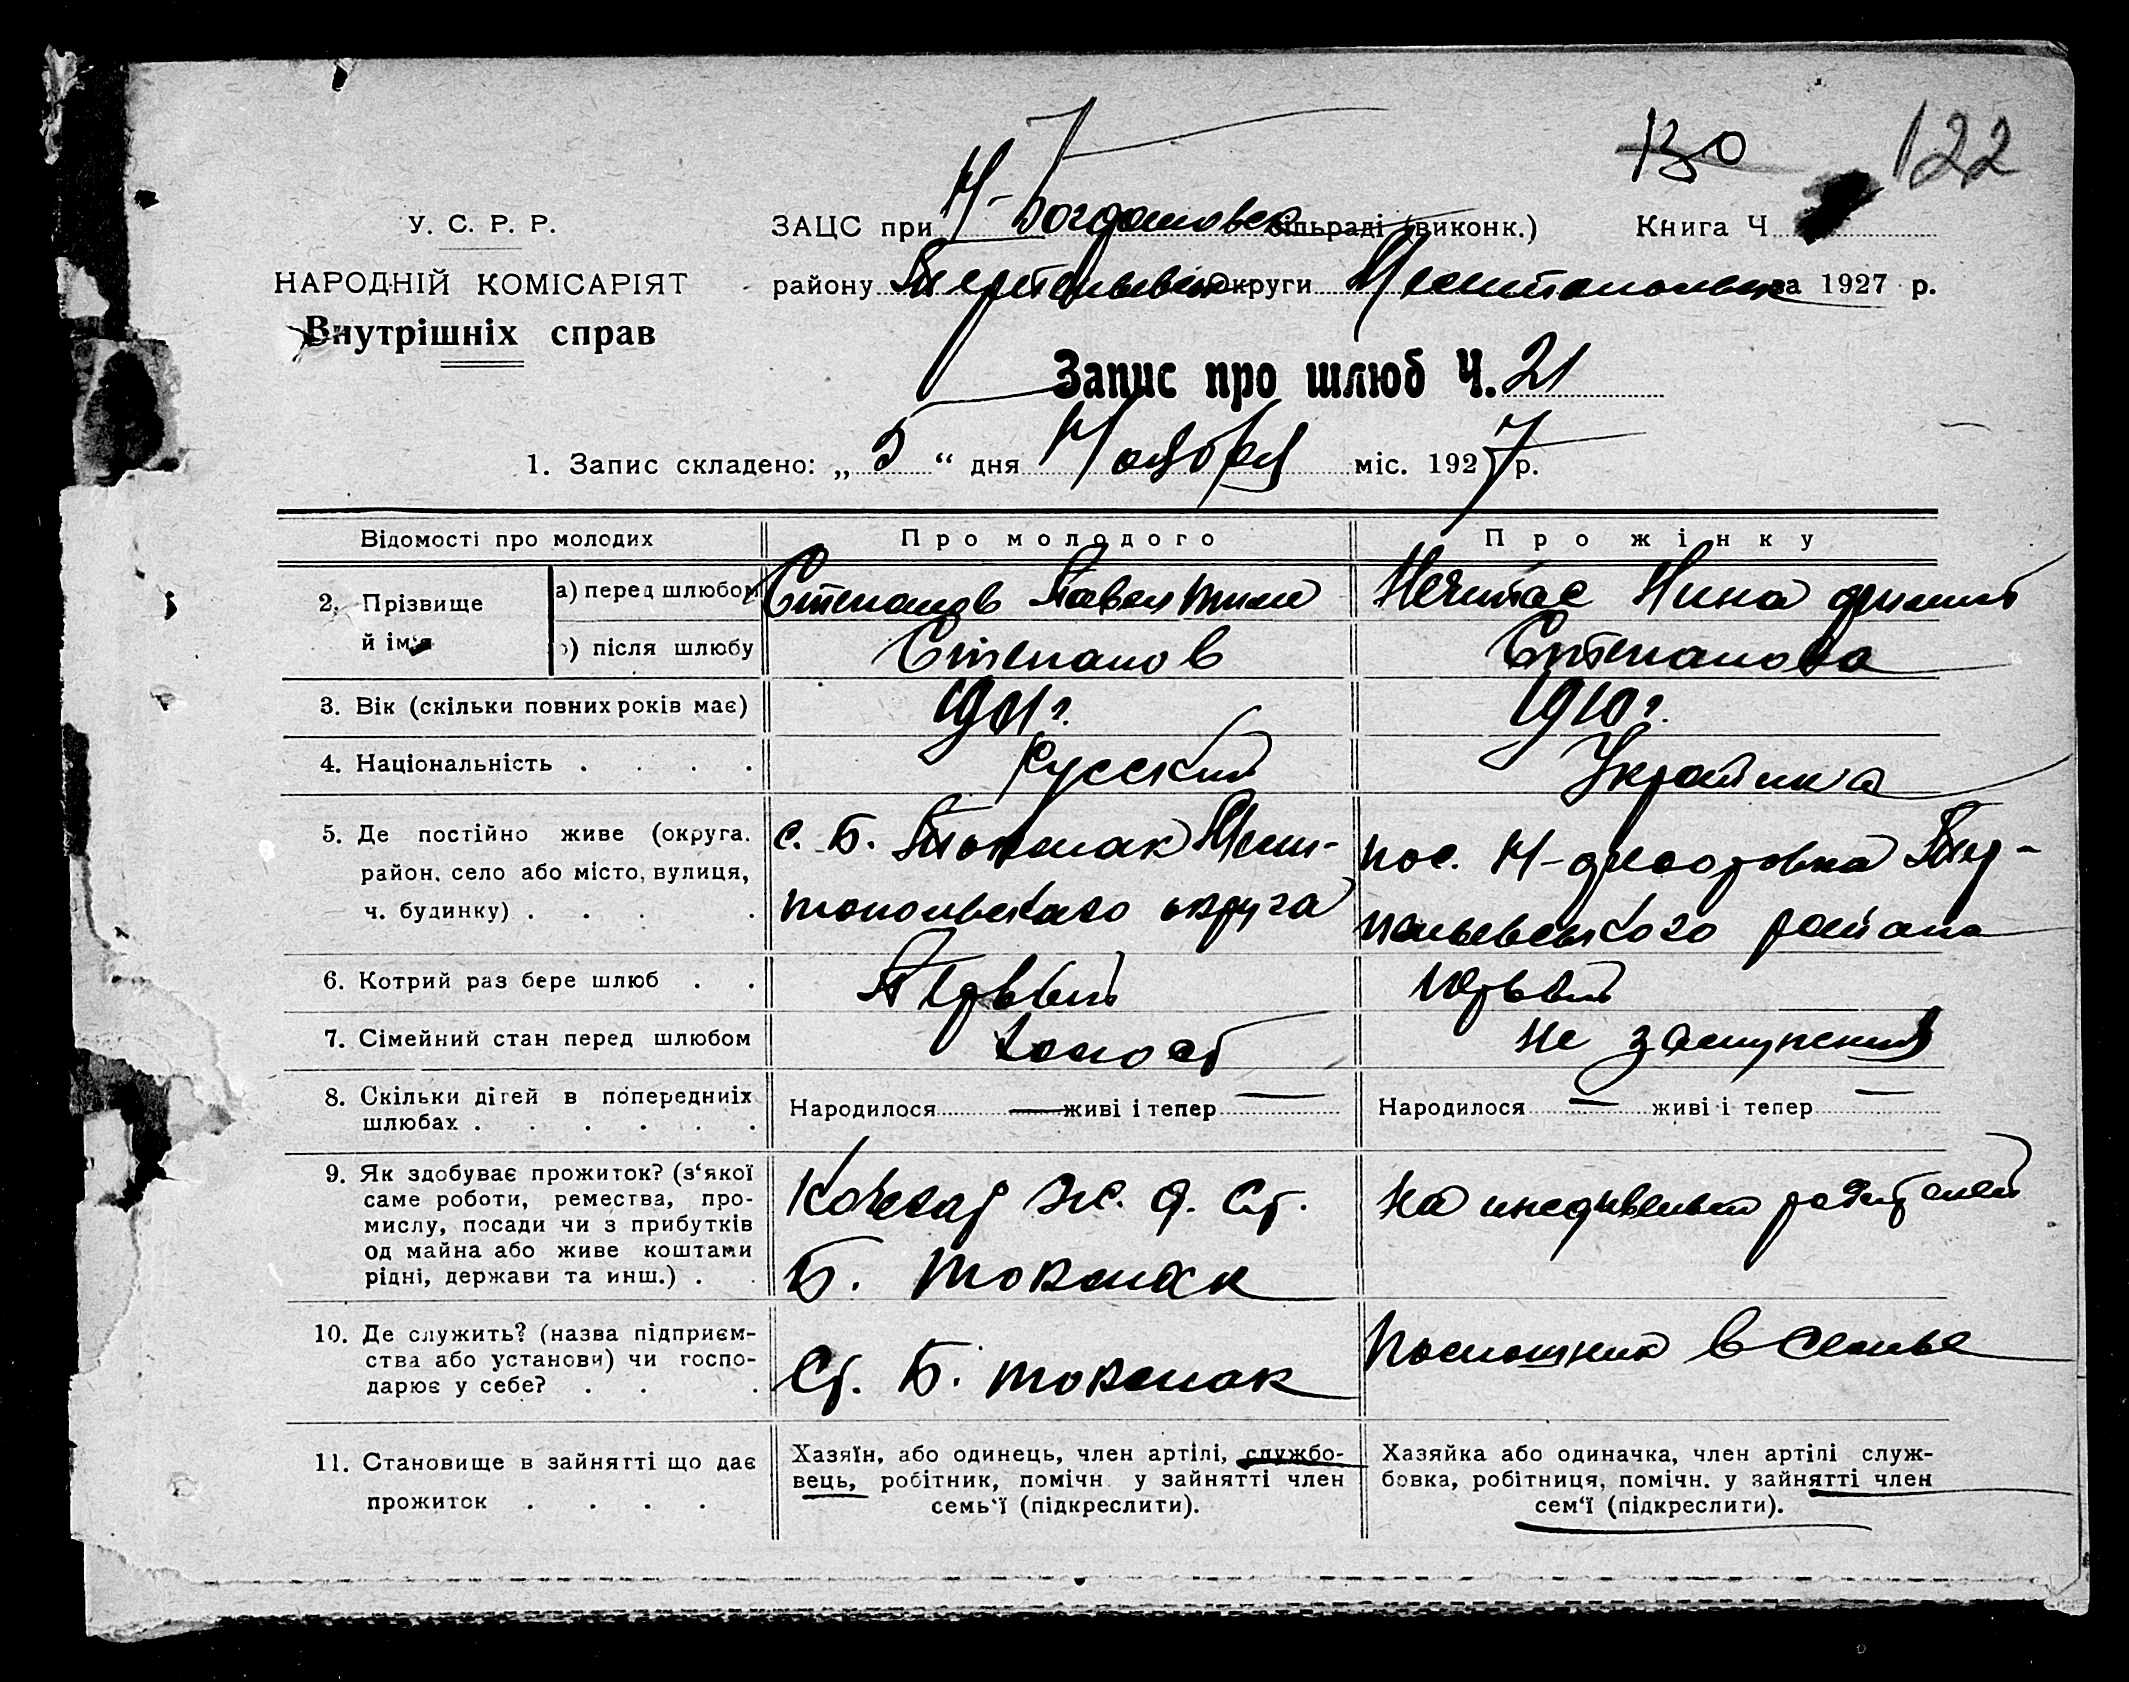 130 122
У. С. Р. Р.
ЗАЦС при Н-Богдановск сільраді (виконк.) Книга Ч
НАРОДНІЙ КОМІСАРІЯТ
району Терпеньевск Округи Мелитопольск за 1927 р.
Внутрішніх справ
Запис про шлюб Ч. 21
1. Запис складено: „ 5 “ дня Ноября міс. 1927 р.
Відомості про молодих
Про молодого
Про жінку
2. Прізвище й ім'я
а) перед шлюбом
Степанов Павел Тим
Нечитас Нина
б) після шлюбу
Степанов
Степанова
3. Вік (скільки повних років має)
1901 г.
1910 г.
4. Національність . . . .
Русский
Украинка
5. Де постійно живе (округа,
район, село або місто, вулиця,
ч. будинку) . . . .
с. Б. Токмак Мели-
топольского округа
пос. Н-федоровка Тер-
пеньевського района
6. Котрий раз бере шлюб . .
Первый
первый
7. Сімейний стан перед шлюбом
Холост
не замужния
8. Скільки дітей в попередниіх
шлюбах . . . . . .
Народилося — живі і тепер —
Народилося — живі і тепер —
9. Як здобуває прожиток? (з‘якої
саме роботи, ремества, про-
мислу, посади чи з прибутків
од майна або живе коштами
рідні, держави та инш.) . .
Кочегар ж. д. ст.
Б. Токмак
на иждивении родителей
10. Де служить? (назва підприєм-
ства або установи) чи госпо-
дарює у себе? . . .
Ст. Б. Токмак
Помощник в семье
11. Становище в зайнятті що дає
прожиток . . . .
Хазяїн, або одинець, член артілі, службо-
вець, робітник, помічн. у зайнятті член
семь‘ї (підкреслити).
Хазяйка або одиначка, член артілі служ-
бовка, робітниця, помічн. у зайнятті член
сем‘ї (підкреслити).